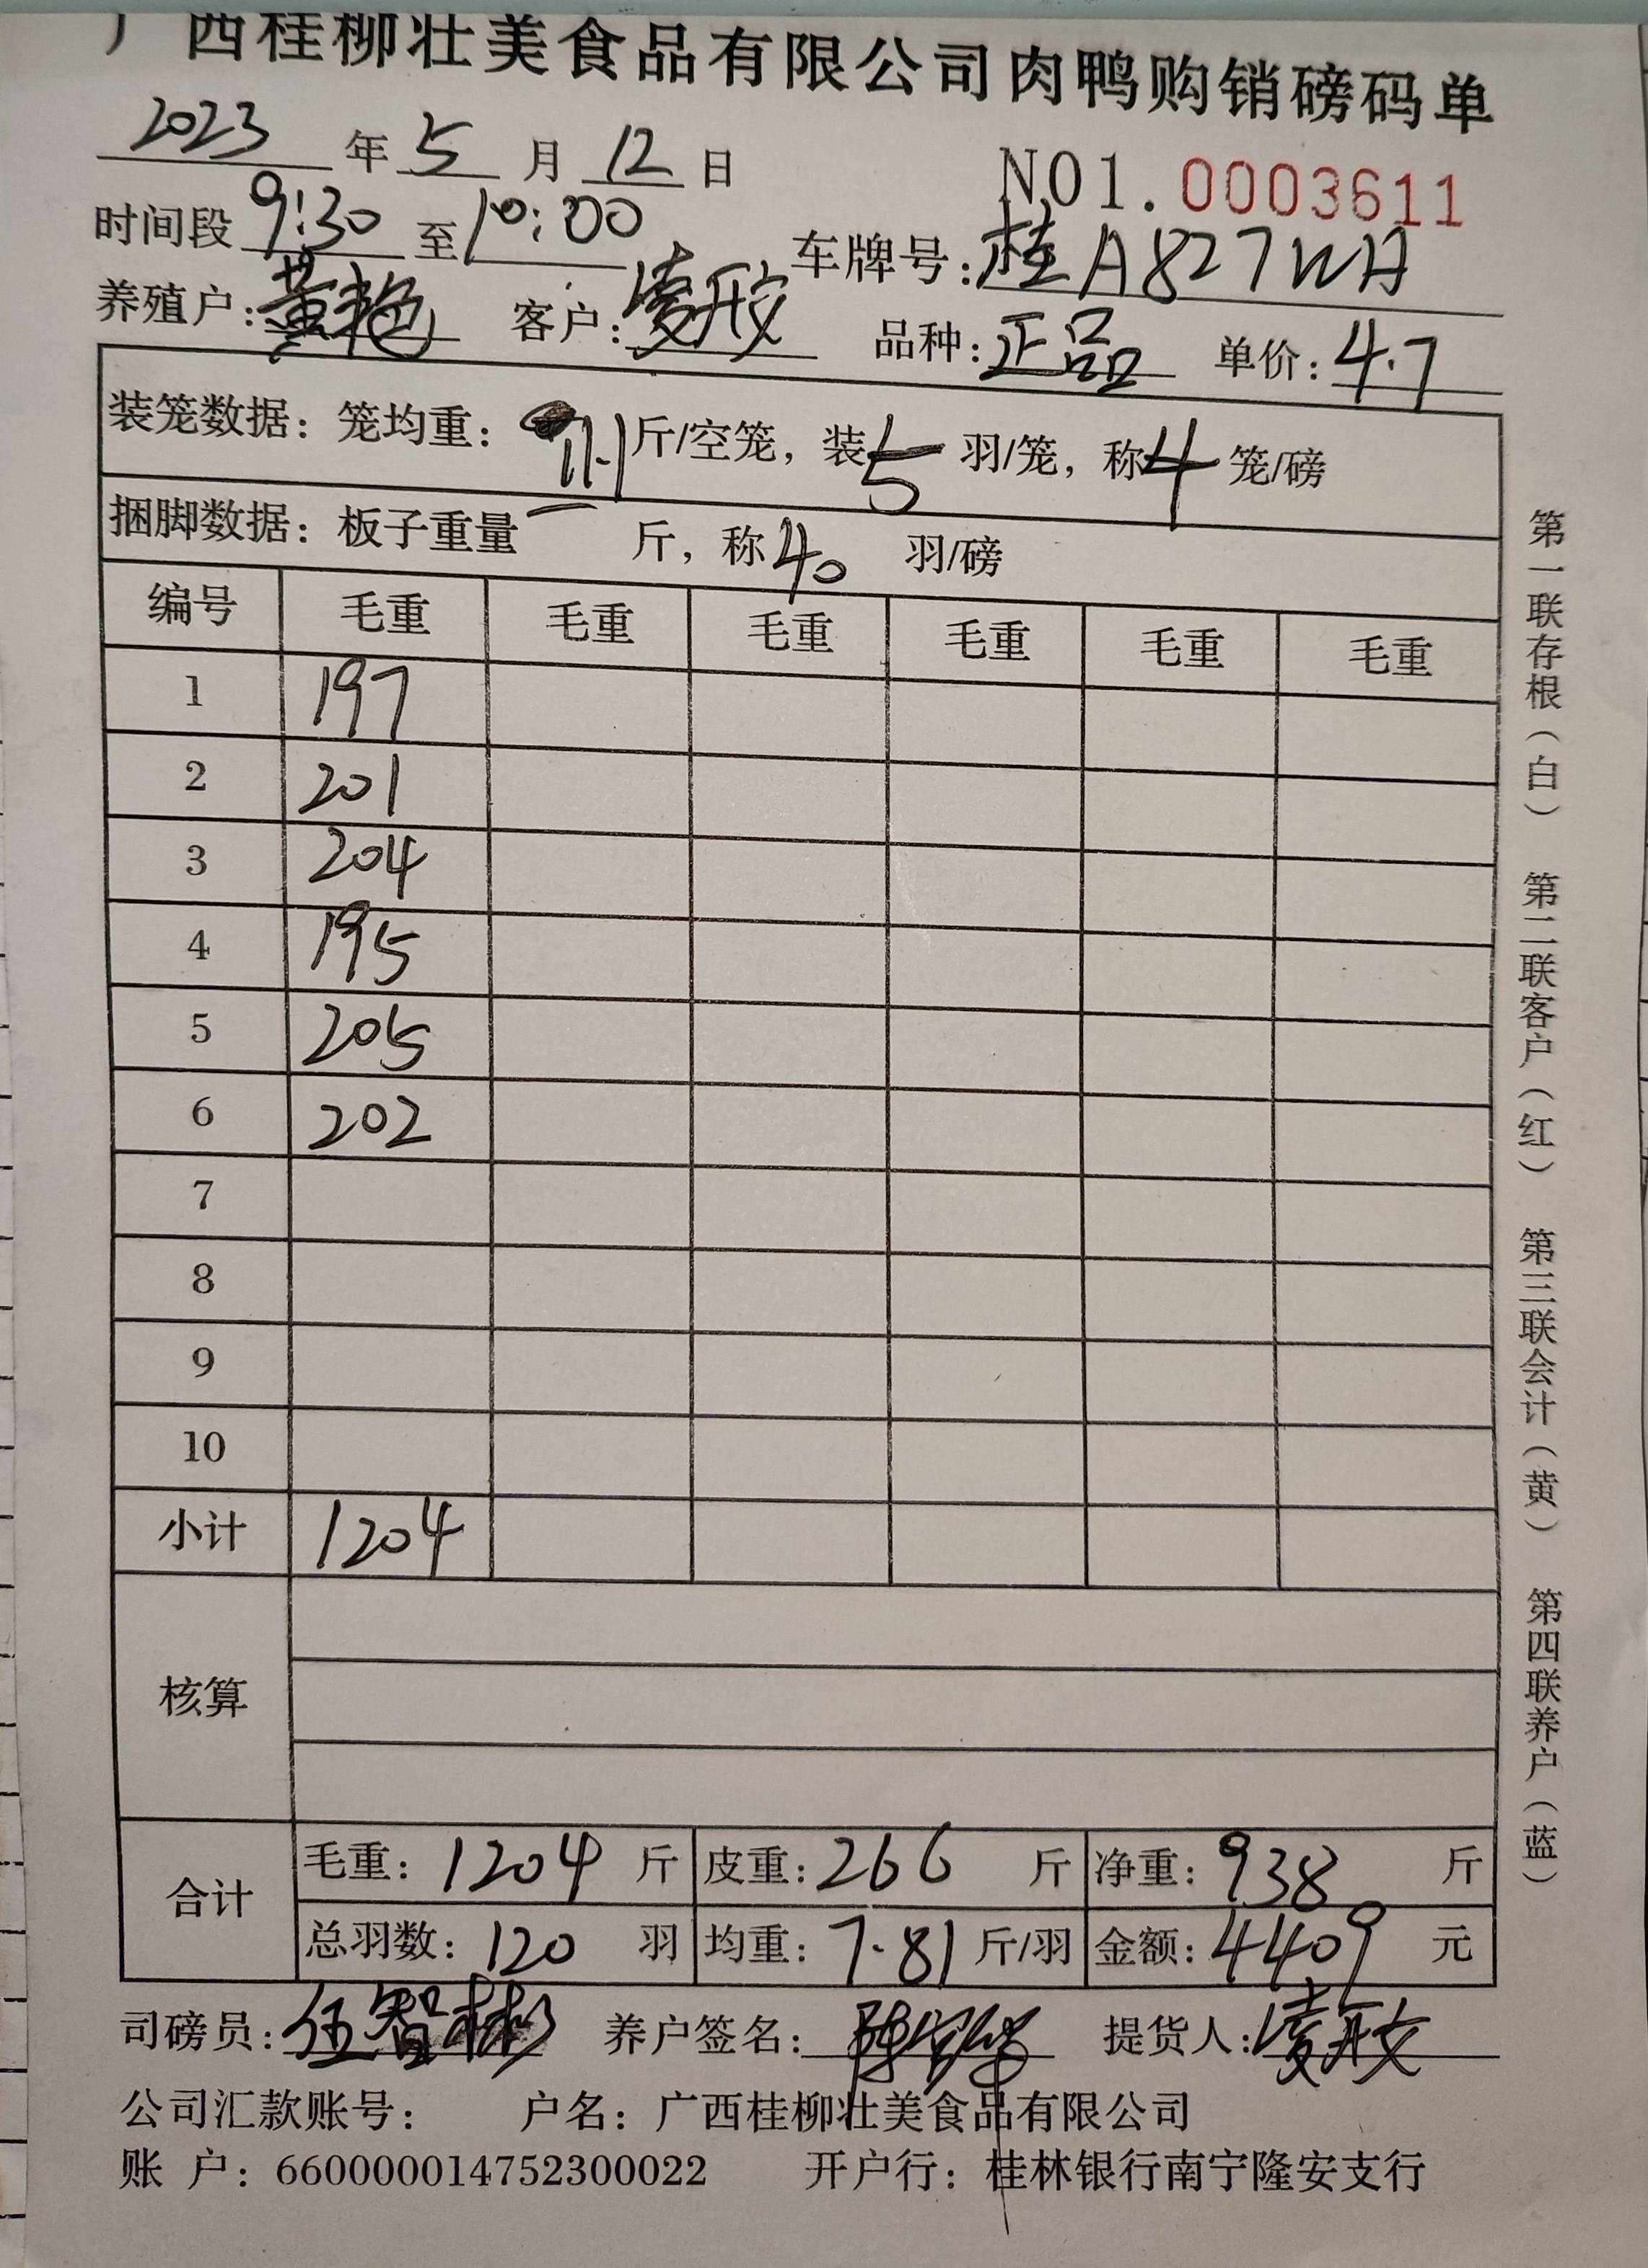 广西桂柳壮美食品有限公司肉鸭购销磅码单
2023 年 5 月 12 日
NO1.0003611
时间段 9:30 至 10:00 车牌号:桂A827WA
养殖户:黄艳 客户: 品种:正品 单价:4.7
装笼数据:笼均重: 11.1 斤/空笼,装 5 羽/笼,称 4 笼/磅
捆脚数据:板子重量 一 斤,称 40 羽/磅
编号 毛重 毛重 毛重 毛重 毛重 毛重
1 197
2 201
3 204
4 195
5 205
6 202
7
8
9
10
小计 1204
核算
合计 毛重:1204 斤 皮重:266 斤 净重:938 斤
总羽数:120 羽 均重:7.81 斤/羽 金额:4409 元
司磅员:伍智彬 养户签名: 提货人:
公司汇款账号: 户名:广西桂柳壮美食品有限公司
账 户:660000014752300022 开户行:桂林银行南宁隆安支行
第一联存根(白) 第二联客户(红) 第三联会计(黄) 第四联养户(蓝)